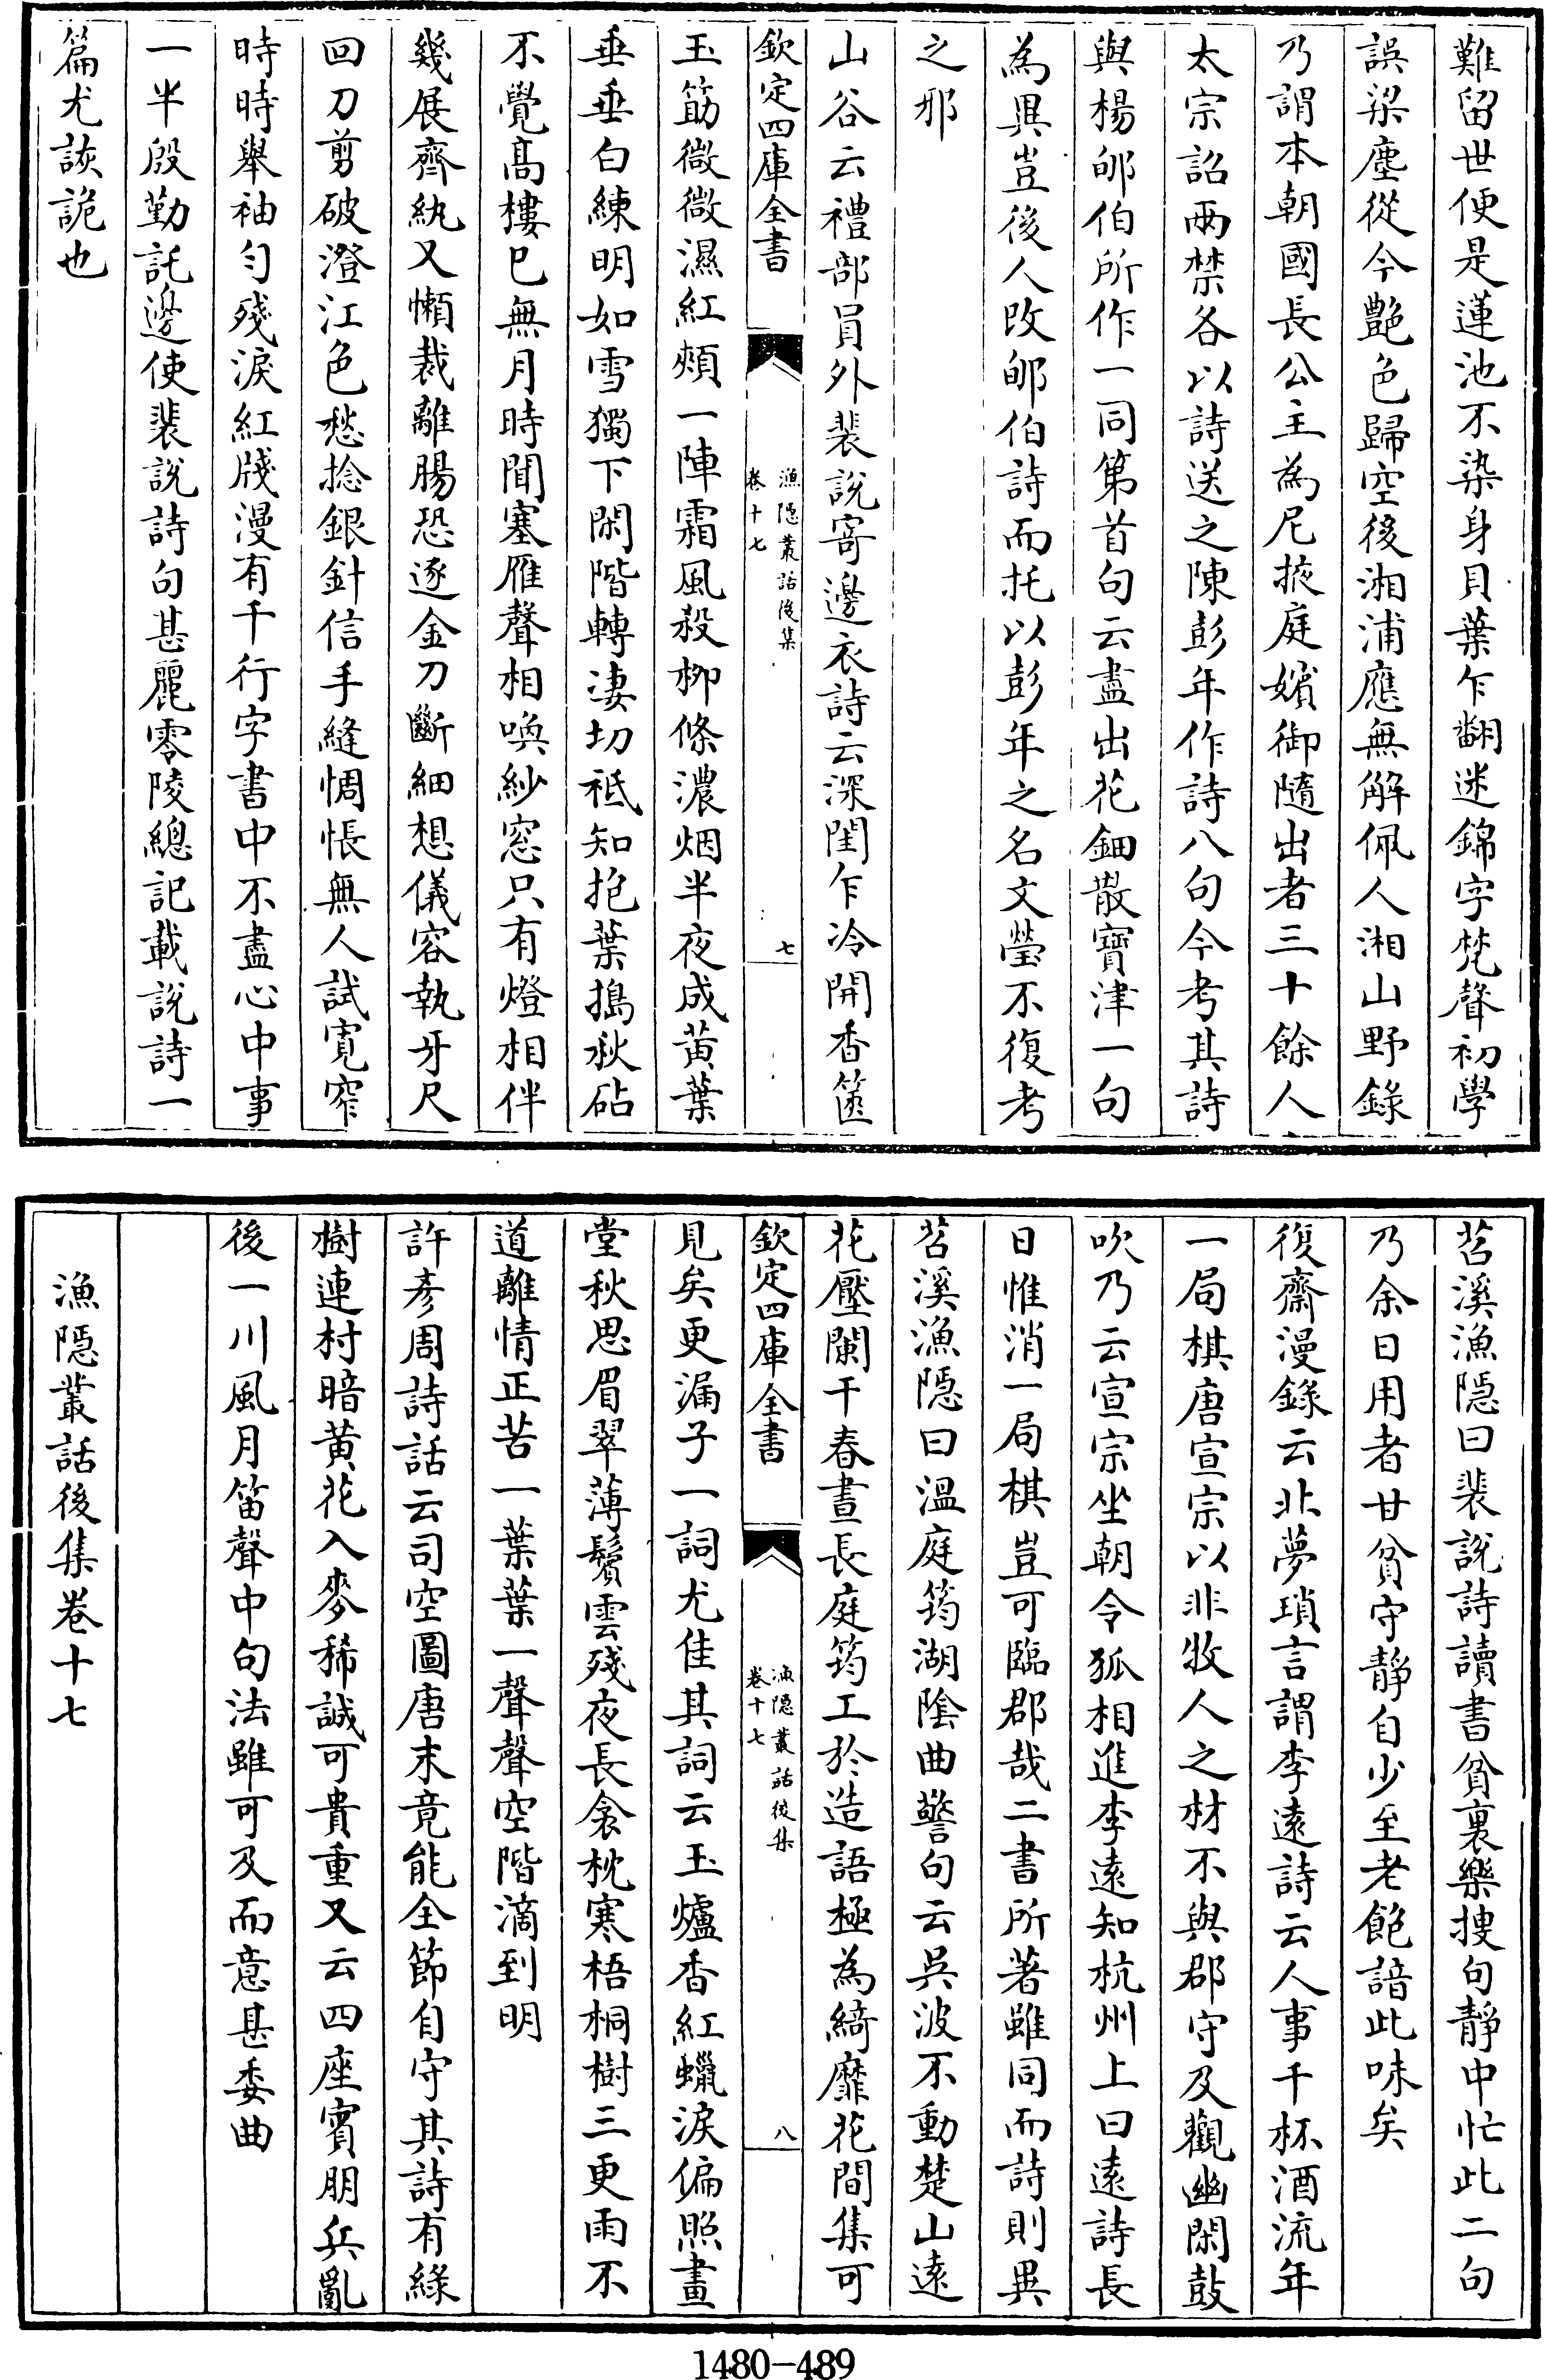 難留世便是蓮池不染身貝葉乍翻迷錦字梵聲初學
誤梁塵從今艷色歸空後湘浦應無解佩人湘山野錄
乃謂本朝國長公主為尼掖庭嬪御隨出者三十餘人
太宗詔兩禁各以詩送之陳彭年作詩八句今考其詩
與楊郇伯所作一同第首句云盡出花鈿散寳津一句
為異豈後人改郇伯詩而托以彭年之名文瑩不復考
之邪
山谷云禮部員外裴說寄邊衣詩云深閨乍冷開香篋
欽定四庫全書
漁隱叢話後集
卷十七
七
玉筯微微濕紅頰一陣霜風殺柳條濃烟半夜成黃葉
垂垂白練明如雪獨下閑階轉凄切祗知抱葉搗秋砧
不覺髙樓已無月時聞塞雁聲相喚紗窓只有燈相伴
幾展齊紈又懶裁離腸恐逐金刀斷細想儀容執牙尺
回刀剪破澄江色愁捻銀針信手縫惆悵無人試寛窄
時時舉袖勻殘淚紅牋漫有千行字書中不盡心中事
一半殷勤託邊使裴說詩句甚麗零陵總記載說詩一
篇尤詼詭也
苕溪漁隱曰裴說詩讀書貧裏樂搜句靜中忙此二句
乃余日用者甘貧守靜自少至老飽諳此味矣
復齋漫錄云北夢瑣言謂李遠詩云人事千杯酒流年
一局棋唐宣宗以非牧人之材不與郡守及觀幽閑鼓
吹乃云宣宗坐朝令狐相進李遠知杭州上曰遠詩長
日惟消一局棋豈可臨郡哉二書所著雖同而詩則異
苕溪漁隱曰溫庭筠湖陰曲警句云吳波不動楚山遠
花壓闌干春晝長庭筠工於造語極為綺靡花間集可
欽定四庫全書
漁隱叢話後集
卷十七
八
見矣更漏子一詞尤佳其詞云玉爐香紅蠟淚偏照畫
堂秋思眉翠薄鬢雲殘夜長衾枕寒梧桐樹三更雨不
道離情正苦一葉葉一聲聲空階滴到明
許彥周詩話云司空圖唐末竟能全節自守其詩有綠
樹連村暗黃花入麥稀誠可貴重又云四座賓朋兵亂
後一川風月笛聲中句法雖可及而意甚委曲
漁隱叢話後集卷十七
1480-489